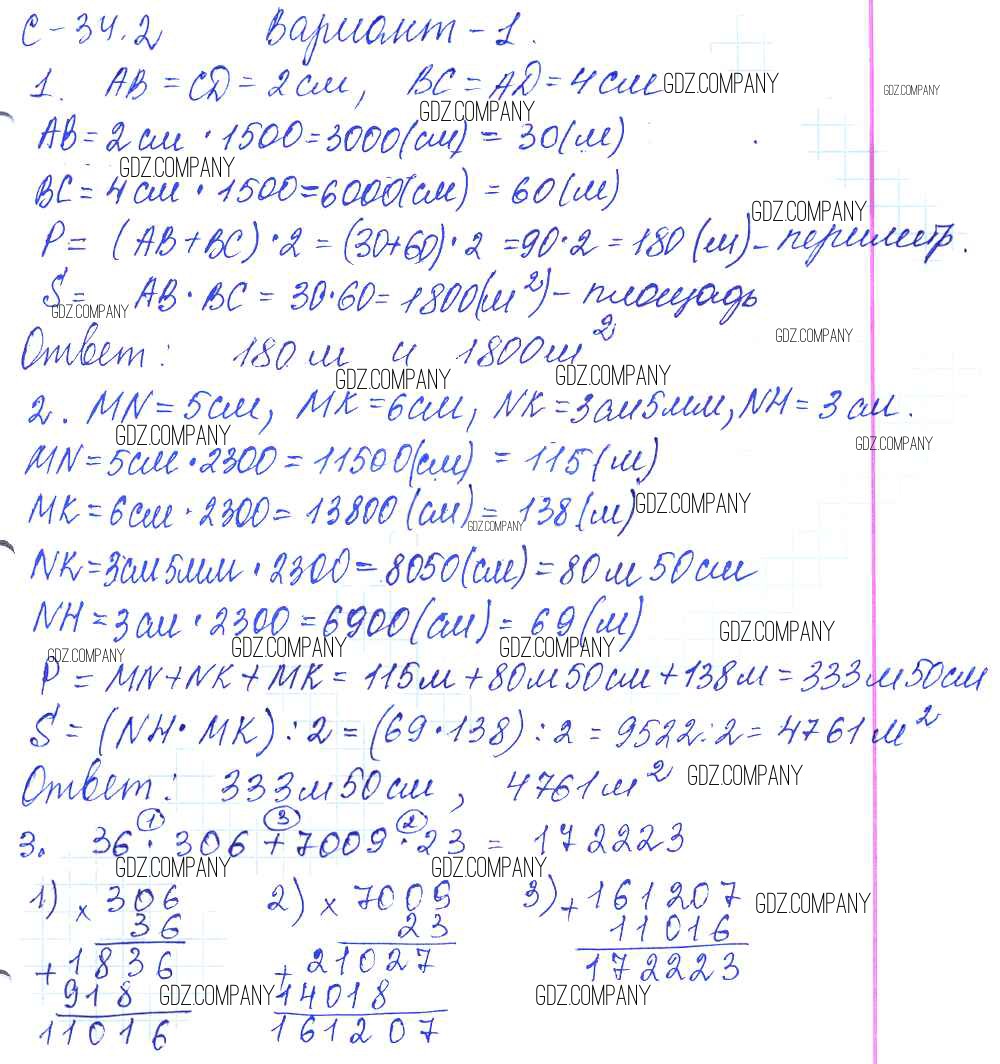 С-34.2 Вариант-1.
1. AB = CD = 2 см, BC = AD = 4 см GDZ.COMPANY
GDZ.COMPANY
GDZ.COMPANY
AB = 2 см · 1500 = 3000 (см) = 30 (м)
GDZ.COMPANY
BC = 4 см · 1500 = 6000 (см) = 60 (м)
GDZ.COMPANY
P = (AB + BC) · 2 = (30+60) · 2 = 90 · 2 = 180 (м) - периметр.
S = AB · BC = 30 · 60 = 1800 (м²) - площадь
GDZ.COMPANY
GDZ.COMPANY
Ответ: 180 м и 1800 м²
GDZ.COMPANY GDZ.COMPANY
2. MN = 5 см, MK = 6 см, NK = 3 см 5 мм, NH = 3 см.
GDZ.COMPANY GDZ.COMPANY
MN = 5 см · 2300 = 11500 (см) = 115 (м)
MK = 6 см · 2300 = 13800 (см) = 138 (м) GDZ.COMPANY
GDZ.COMPANY
NK = 3 см 5 мм · 2300 = 8050 (см) = 80 м 50 см
NH = 3 см · 2300 = 6900 (см) = 69 (м)
GDZ.COMPANY
GDZ.COMPANY GDZ.COMPANY GDZ.COMPANY
P = MN + NK + MK = 115 м + 80 м 50 см + 138 м = 333 м 50 см
S = (NH · MK) : 2 = (69 · 138) : 2 = 9522 : 2 = 4761 м²
Ответ: 333 м 50 см, 4761 м² GDZ.COMPANY
1 3 2
3. 36 · 306 + 7009 · 23 = 172223
GDZ.COMPANY GDZ.COMPANY
1) × 306 2) × 7009 3) + 161207 GDZ.COMPANY
36 23 11016
+ 1836 + 21027 172223
918 GDZ.COMPANY 14018 GDZ.COMPANY
11016 161207